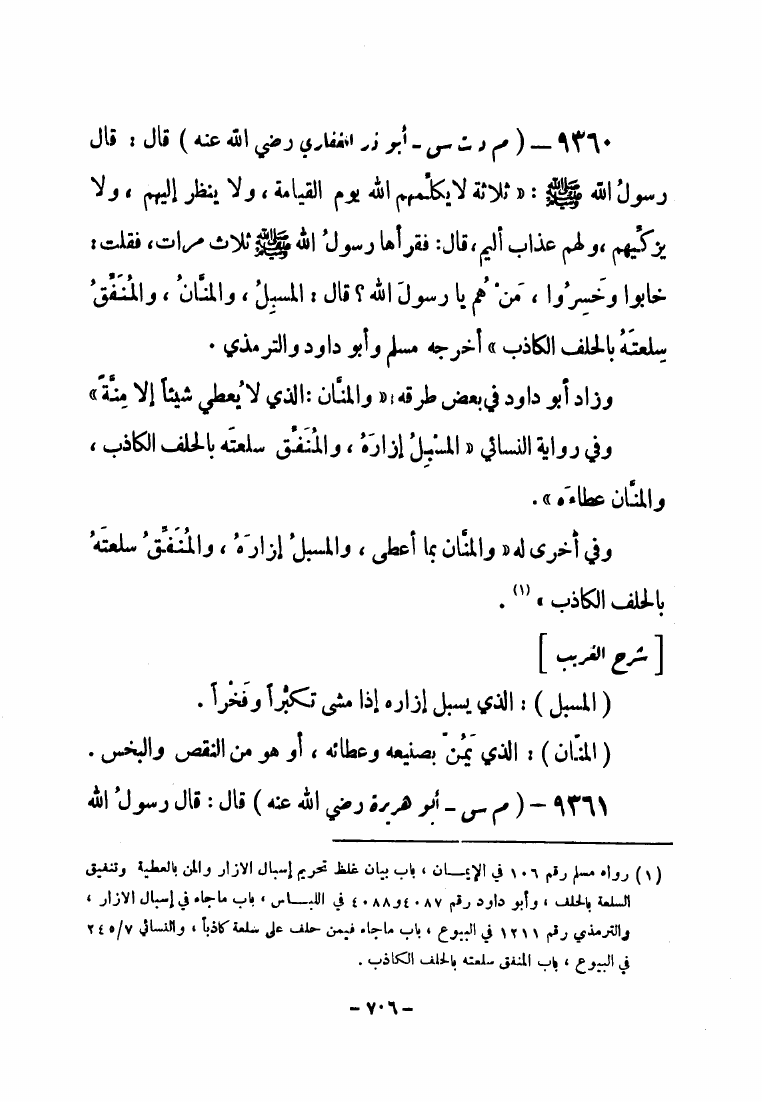 ٩٣٦٠ — ( م د ت س - أبو ذر الغفاري رضي الله عنه ) قال : قال
رسولُ الله ﷺ : « ثلاثة لا يكلِّمهم الله يوم القيامة ، ولا ينظر إليهم ، ولا
يزكِّيهم ، ولهم عذاب أليم ، قال : فقرأها رسولُ الله ﷺ ثلاث مرات ، فقلت :
خابوا وخَسِرُوا ، مَنْ هُم يا رسولَ الله ؟ قال : المسبِلُ ، والمنَّانُ ، والمُنَفِّقُ
سِلعتَهُ بالحلف الكاذب » أخرجه مسلم وأبو داود والترمذي .
وزاد أبو داود في بعض طرقه : « والمنَّان : الذي لا يُعطي شيئاً إلا مِنَّةً »
وفي رواية النسائي « المسْبِلُ إزارَهُ ، والمُنَفِّق سلعتَه بالحلف الكاذب ،
والمنَّان عطاءَه » .
وفي أخرى له « والمنَّان بما أعطى ، والمسبلُ إزارَهُ ، والمُنَفِّقُ سلعتَهُ
بالحلف الكاذب » (١) .
[ شرح الغريب ]
( المسبل ) : الذي يسبل إزاره إذا مشى تكبُّراً وفَخْراً .
( المنّان ) : الذي يَمُنّ بصنيعه وعطائه ، أو هو من النقص والبخس .
٩٣٦١ — ( م س - أبو هريرة رضي الله عنه ) قال : قال رسولُ الله
(١) رواه مسلم رقم ١٠٦ في الإيمـان ، باب بيان غلظ تحريم إسبال الازار والمن بالعطية وتنفيق
السلعة بالحلف ، وأبو داود رقم ٤٠٨٧ و ٤٠٨٨ في اللبـاس ، باب ماجاء في إسبال الازار ،
والترمذي رقم ١٢١١ في البيوع ، باب ماجاء فيمن حلف على سلعة كاذباً ، والنسائي ٢٤٥/٧
في البيوع ، باب المنفق سلعته بالحلف الكاذب .
- ٧٠٦ -